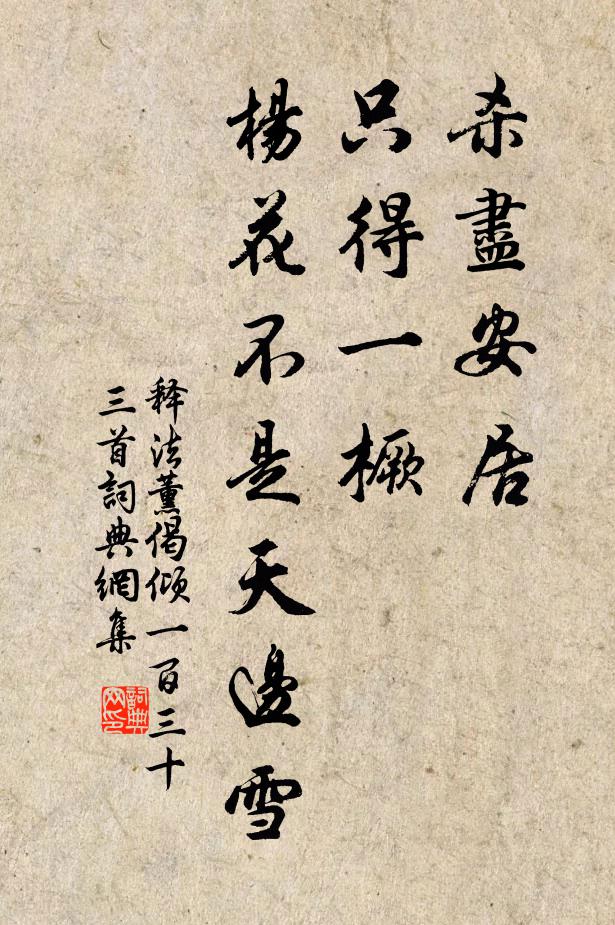 杀盡安居
只得一橛
楊花不是天邊雪
释法薰偈傾一百三十
三首詞典網集
詞典网印